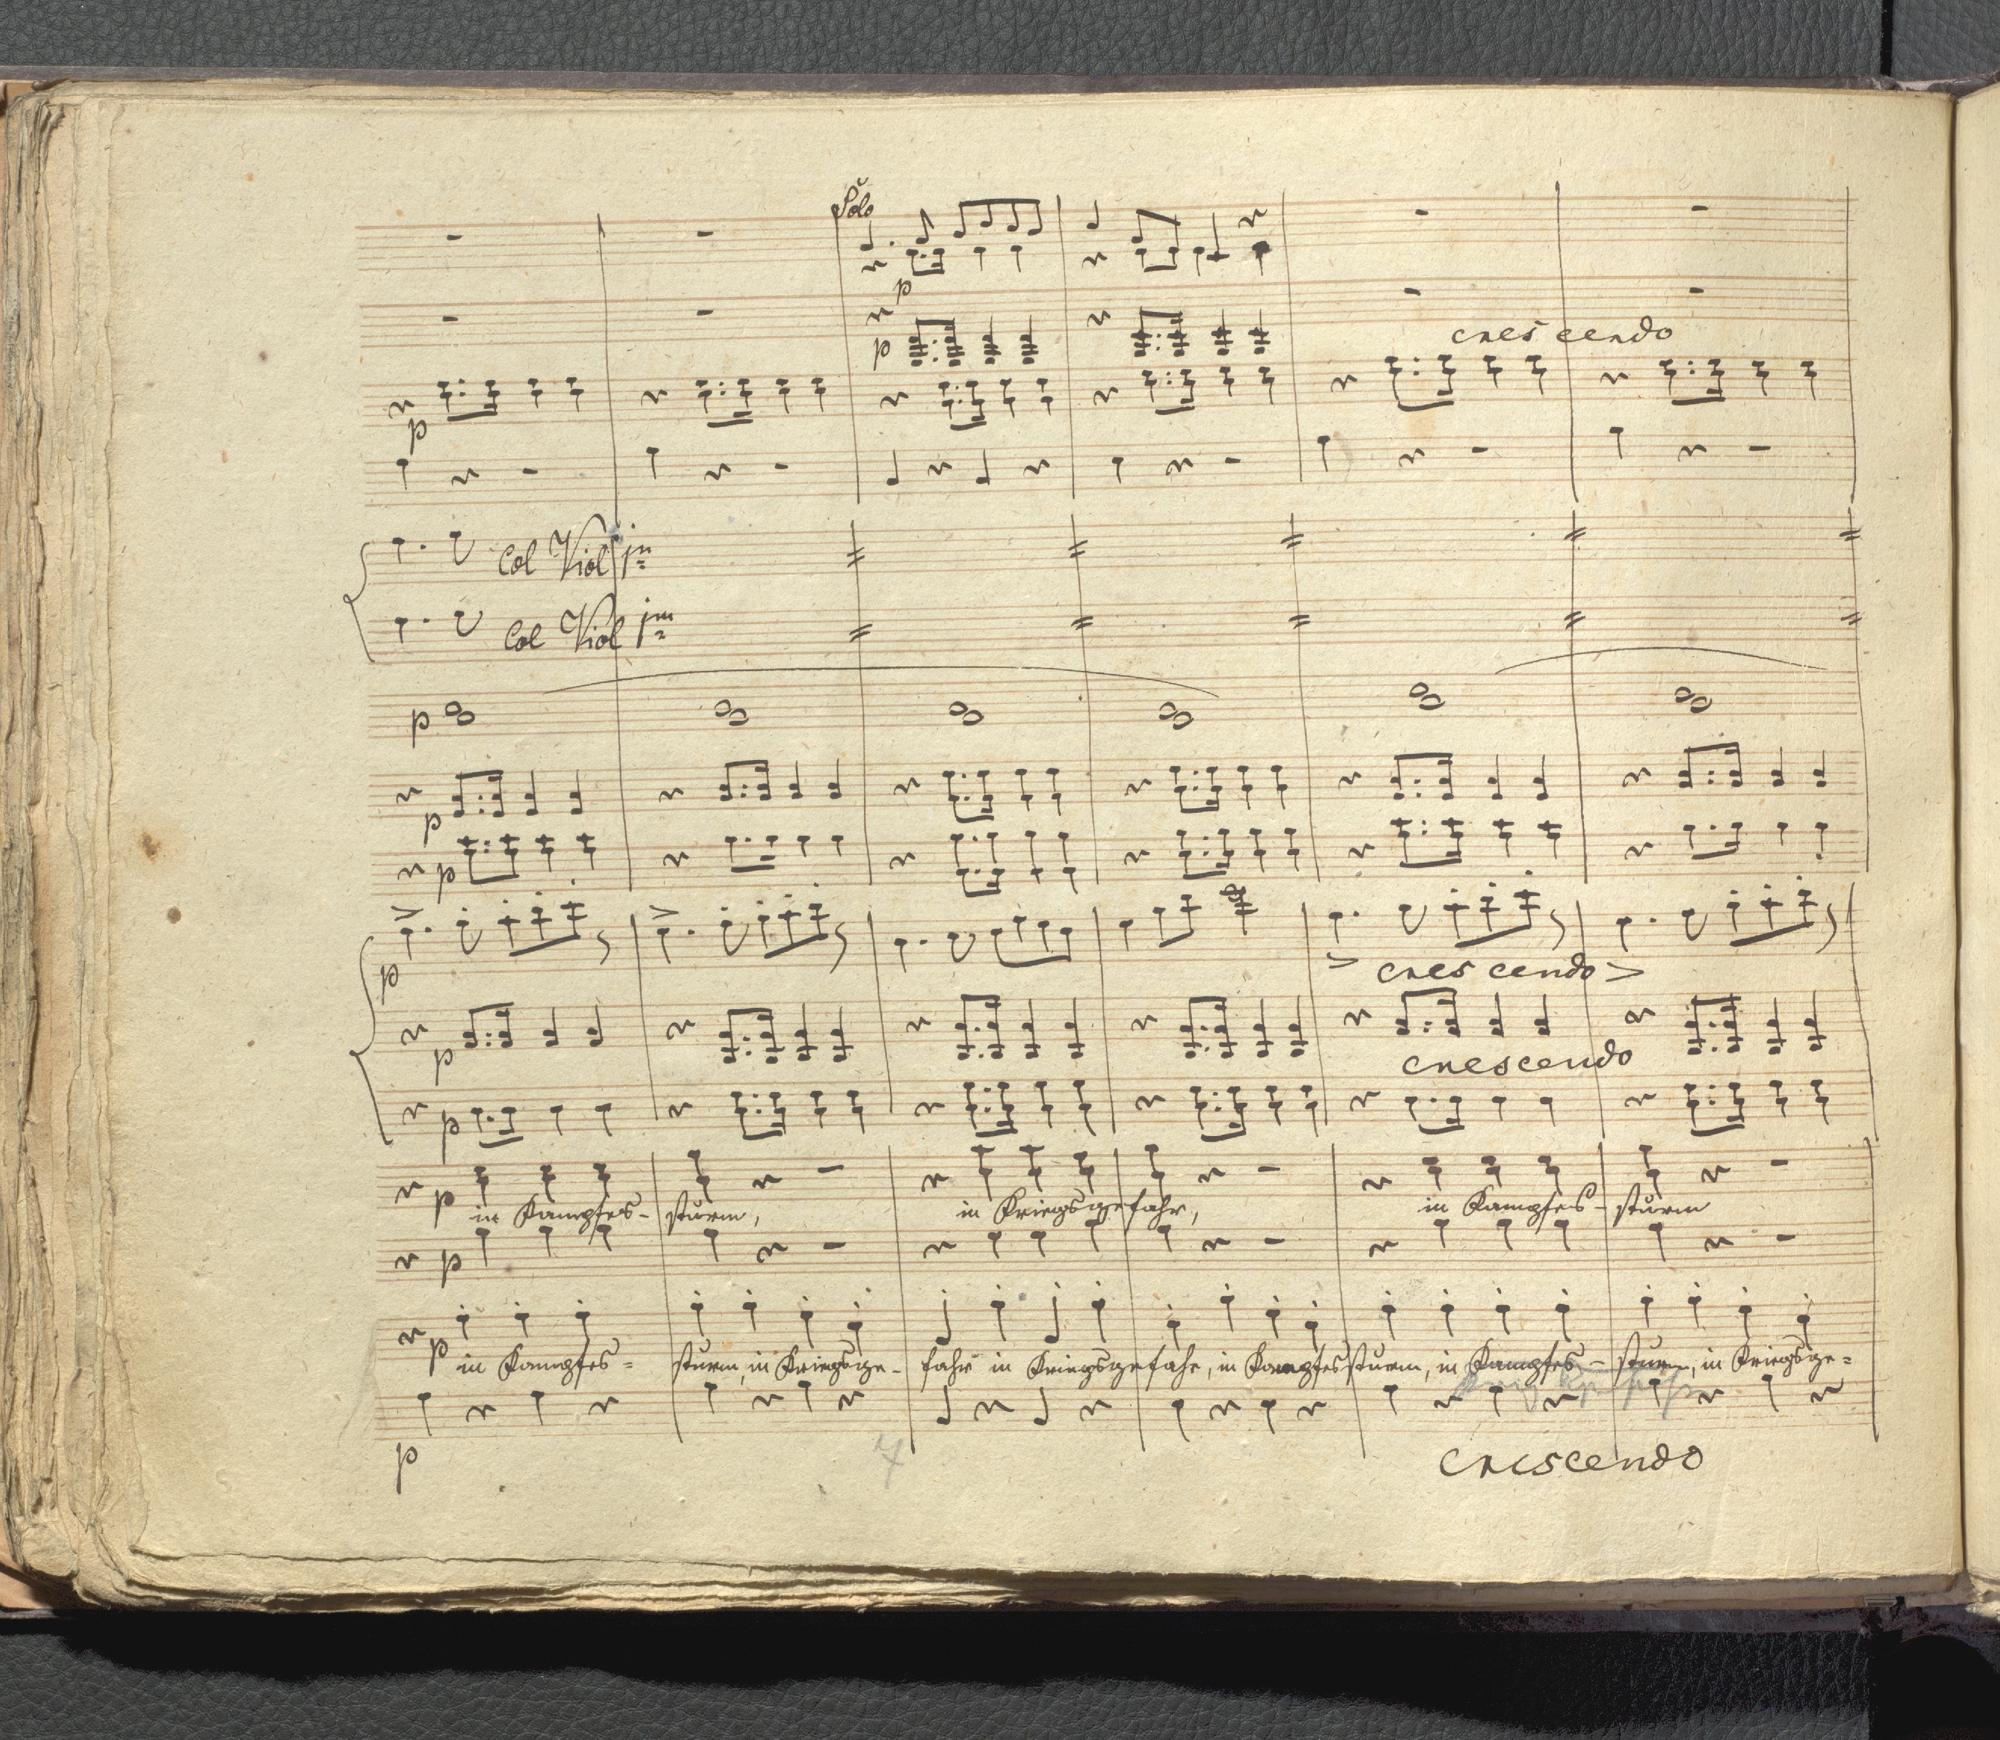 Solo
p
p
crescendo
p
Col Viol 1mo
Col Viol 1mo
p
p
p
p
crescendo
p
crescendo
p
p
in Kampfes- sturm, in Kriegsgefahr, in Kampfes- sturm
p
p
in Kampfes= sturm, in Kriegsge- fahr in Kriegsgefahr, in Kampfessturm, in Kampfes- sturm, in Kriegsge=
p
crescendo